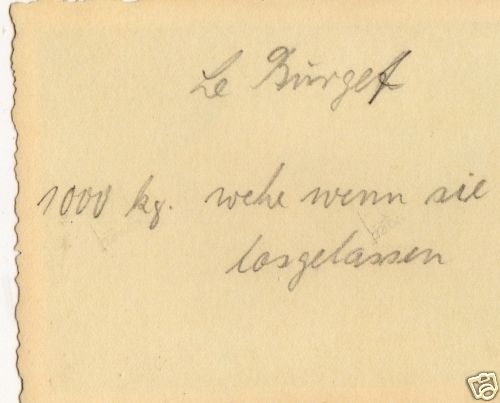 Le Bürget
1000 kg. wehe wenn sie
losgelassen